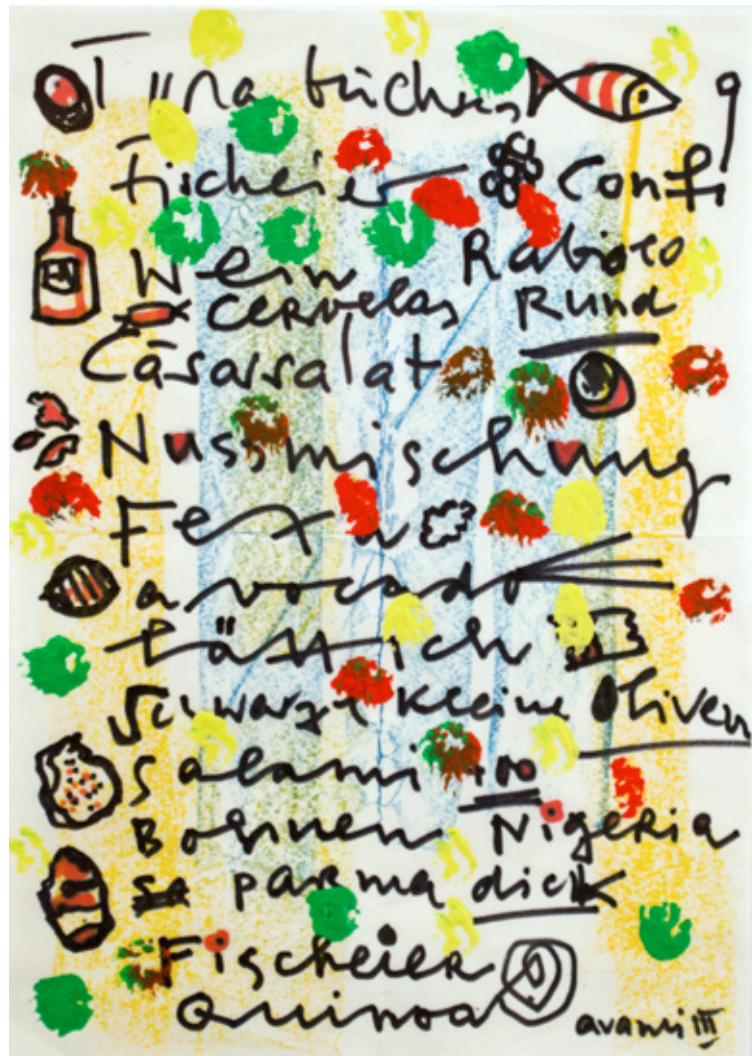 Tuna büchsen 9
Fischeier Confi
Wein
Cervelas Rund
Cäsarsalat
Nussmischung
Feta
avocado
Rättich
Schwarze kleine Oliven
Salami 100
Bohnen Nigeria
parma dick
Fischeier
Quinoa